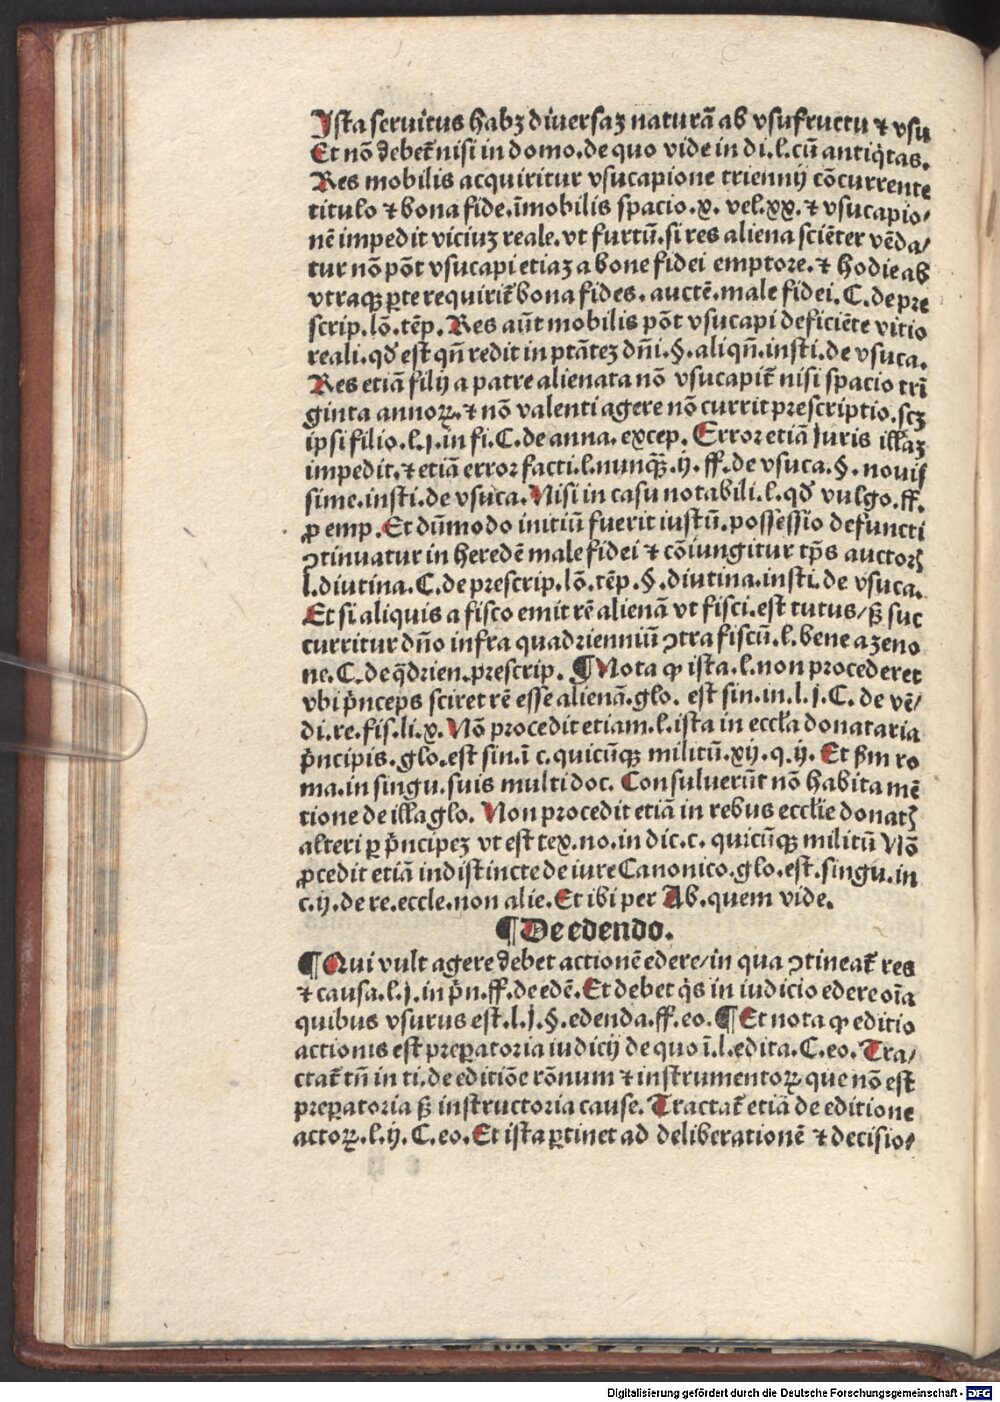 Jsta seruitus habꝫ diuersaꝫ naturā ab vsufructu ⁊ vsu
Et nō debet̄ nisi in domo. de quo vide in di. l. cū antiq̇tas.
Res mobilis acquiritur vsucapione triennij cōcurrente
titulo ⁊ bona fide. īmobilis spacio. x. vel. xx. ⁊ vsucapio/
nē impedit viciuꝫ reale. vt furtū. si res aliena sciēter vēda/
tur nō pōt vsucapi etiaꝫ a bone fidei emptore. ⁊ hodie ab
vtraqꝫ ꝑte requirit̄ bona fides. auctē. male fidei. C. de pre
scrip. lō. tēp. Res aūt mobilis pōt vsucapi deficiēte vitio
reali. qđ est qn̄ redit in ptāteꝫ dn̄i. §. aliqn̄. insti. de vsuca.
Res etiā filij a patre alienata nō vsucapit̄ nisi spacio trī
ginta annoꝝ. ⁊ nō valenti agere nō currit prescriptio. scꝫ
ipsi filio. l. j. in fi. C. de anna. excep. Error etiā juris illaꝫ
impedit. ⁊ etiā error facti. l. nunqꝫ̄. ij. ff. de vsuca. §. nouis
sime. insti. de vsuca. Nisi in casu notabili. l. qđ vulgo. ff.
ꝓ emp. Et dūmodo initiū fuerit iustū. possessio defuncti
ꝯtinuatur in heredē male fidei ⁊ cōiungitur tp̄s auctoꝝ
l. diutina. C. de prescrip. lō. tēp. §. diutina. insti. de vsuca.
Et si aliquis a fisco emit rē alienā vt fisci. est tutus/ sꝫ suc
curritur dn̄o infra quadrienniū ꝯtra fiscū. l. bene a zeno
ne. C. de q̄drien. prescrip. ¶ Nota ꝙ ista. l. non procederet
vbi p̄nceps sciret rē esse alienā. glo. est sin. in. l. j. C. de vē/
di. re. fis. li. x. Nō procedit etiam. l. ista in eccłia donataria
p̄ncipis. glo. est sin. ī c. quicūqꝫ militū. xij. q. ij. Et ẜm ro
ma. in singu. suis multi doc. Consuluerūt nō habita mē
tione de illa glo. Non procedit etiā in rebus eccłie donatꝭ
alteri ꝑ p̄ncipeꝫ vt est tex. no. in dic. c. quicūqꝫ militū Nō
ꝓcedit etiā indistincte de iure Canonico. glo. est. singu. in
c. ij. de re. eccle. non alie. Et ibi per Ab. quem vide.
¶ De edendo.
¶ Qui vult agere debet actionē edere/ in qua ꝯtineat̄ res
⁊ causa. l. j. in p̄n. ff. de edē. Et debet q̇s in iudicio edere oīa
quibus vsurus est. l. j. §. edenda. ff. eo. ¶ Et nota ꝙ editio
actionis est preꝑatoria iudicij de quo ī. l. edita. C. eo. Tra/
ctat̄ tn̄ in ti. de editiōe rōnum ⁊ instrumentoꝝ que nō est
preꝑatoria sꝫ instructoria cause. Tractat̄ etiā de editione
actoꝝ. l. ij. C. eo. Et ista ꝑtinet ad deliberationē ⁊ decisio/
Digitalisierung gefördert durch die Deutsche Forschungsgemeinschaft - DFG